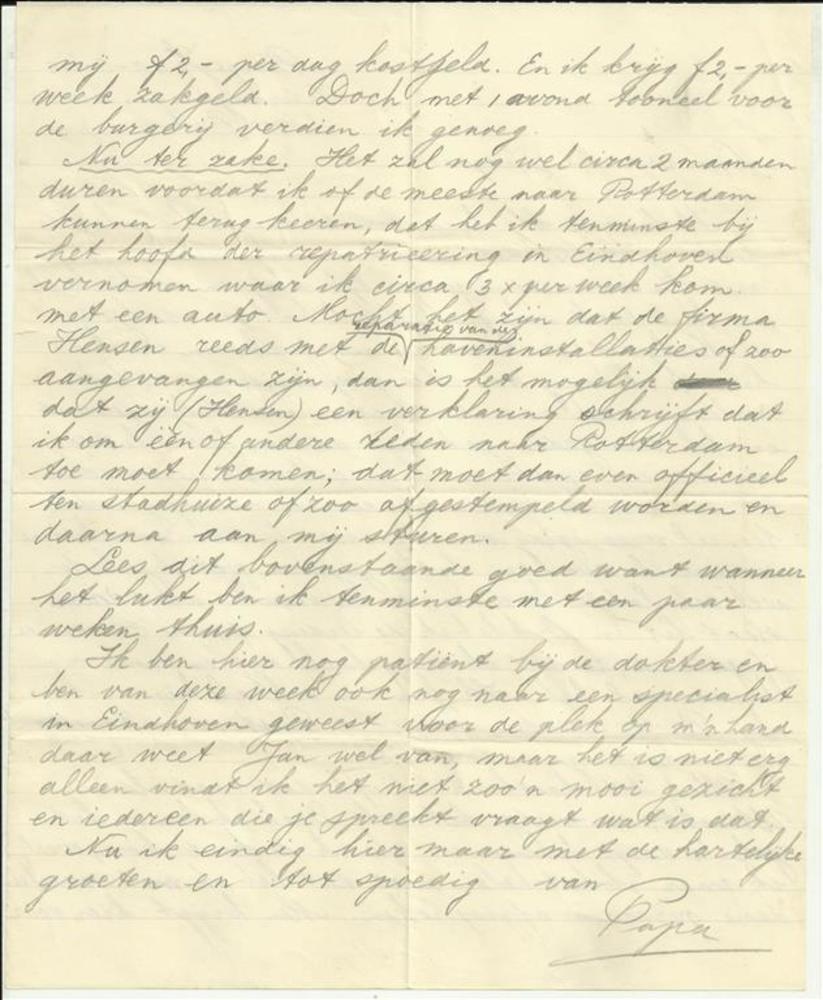 mij f2,- per dag kostgeld. En ik krijg f2,- per
week zakgeld. Doch met 1 avond tooneel voor
de burgerij verdien ik genoeg.
Nu ter zake. Het zal nog wel circa 2 maanden
duren voordat ik of de meeste naar Rotterdam
kunnen terug keeren, dat heb ik tenminste bij
het hoofd der repatrieering in Eindhoven
vernomen waar ik circa 3 x per week kom
met een auto. Mocht het zijn dat de firma
reparatie van de
Hensen reeds met de haveninstallaties of zoo
aangevangen zijn, dan is het mogelijk
dat zij (Hensen) een verklaring schrijft dat
ik om één of andere reden naar Rotterdam
toe moet komen; dat moet dan even officieel
ten stadhuize of zoo afgestempeld worden en
daarna aan mij sturen.
Lees dit bovenstaande goed want wanneer
het lukt ben ik tenminste met een paar
weken thuis.
Ik ben hier nog patiënt bij de dokter en
ben van deze week ook nog naar een specialist
in Eindhoven geweest voor de plek op m'n hand
daar weet Jan wel van, maar het is niet erg
alleen vindt ik het niet zoo'n mooi gezicht
en iedereen die je spreekt vraagt wat is dat.
Nu ik eindig hier maar met de hartelijke
groeten en tot spoedig van
Papa